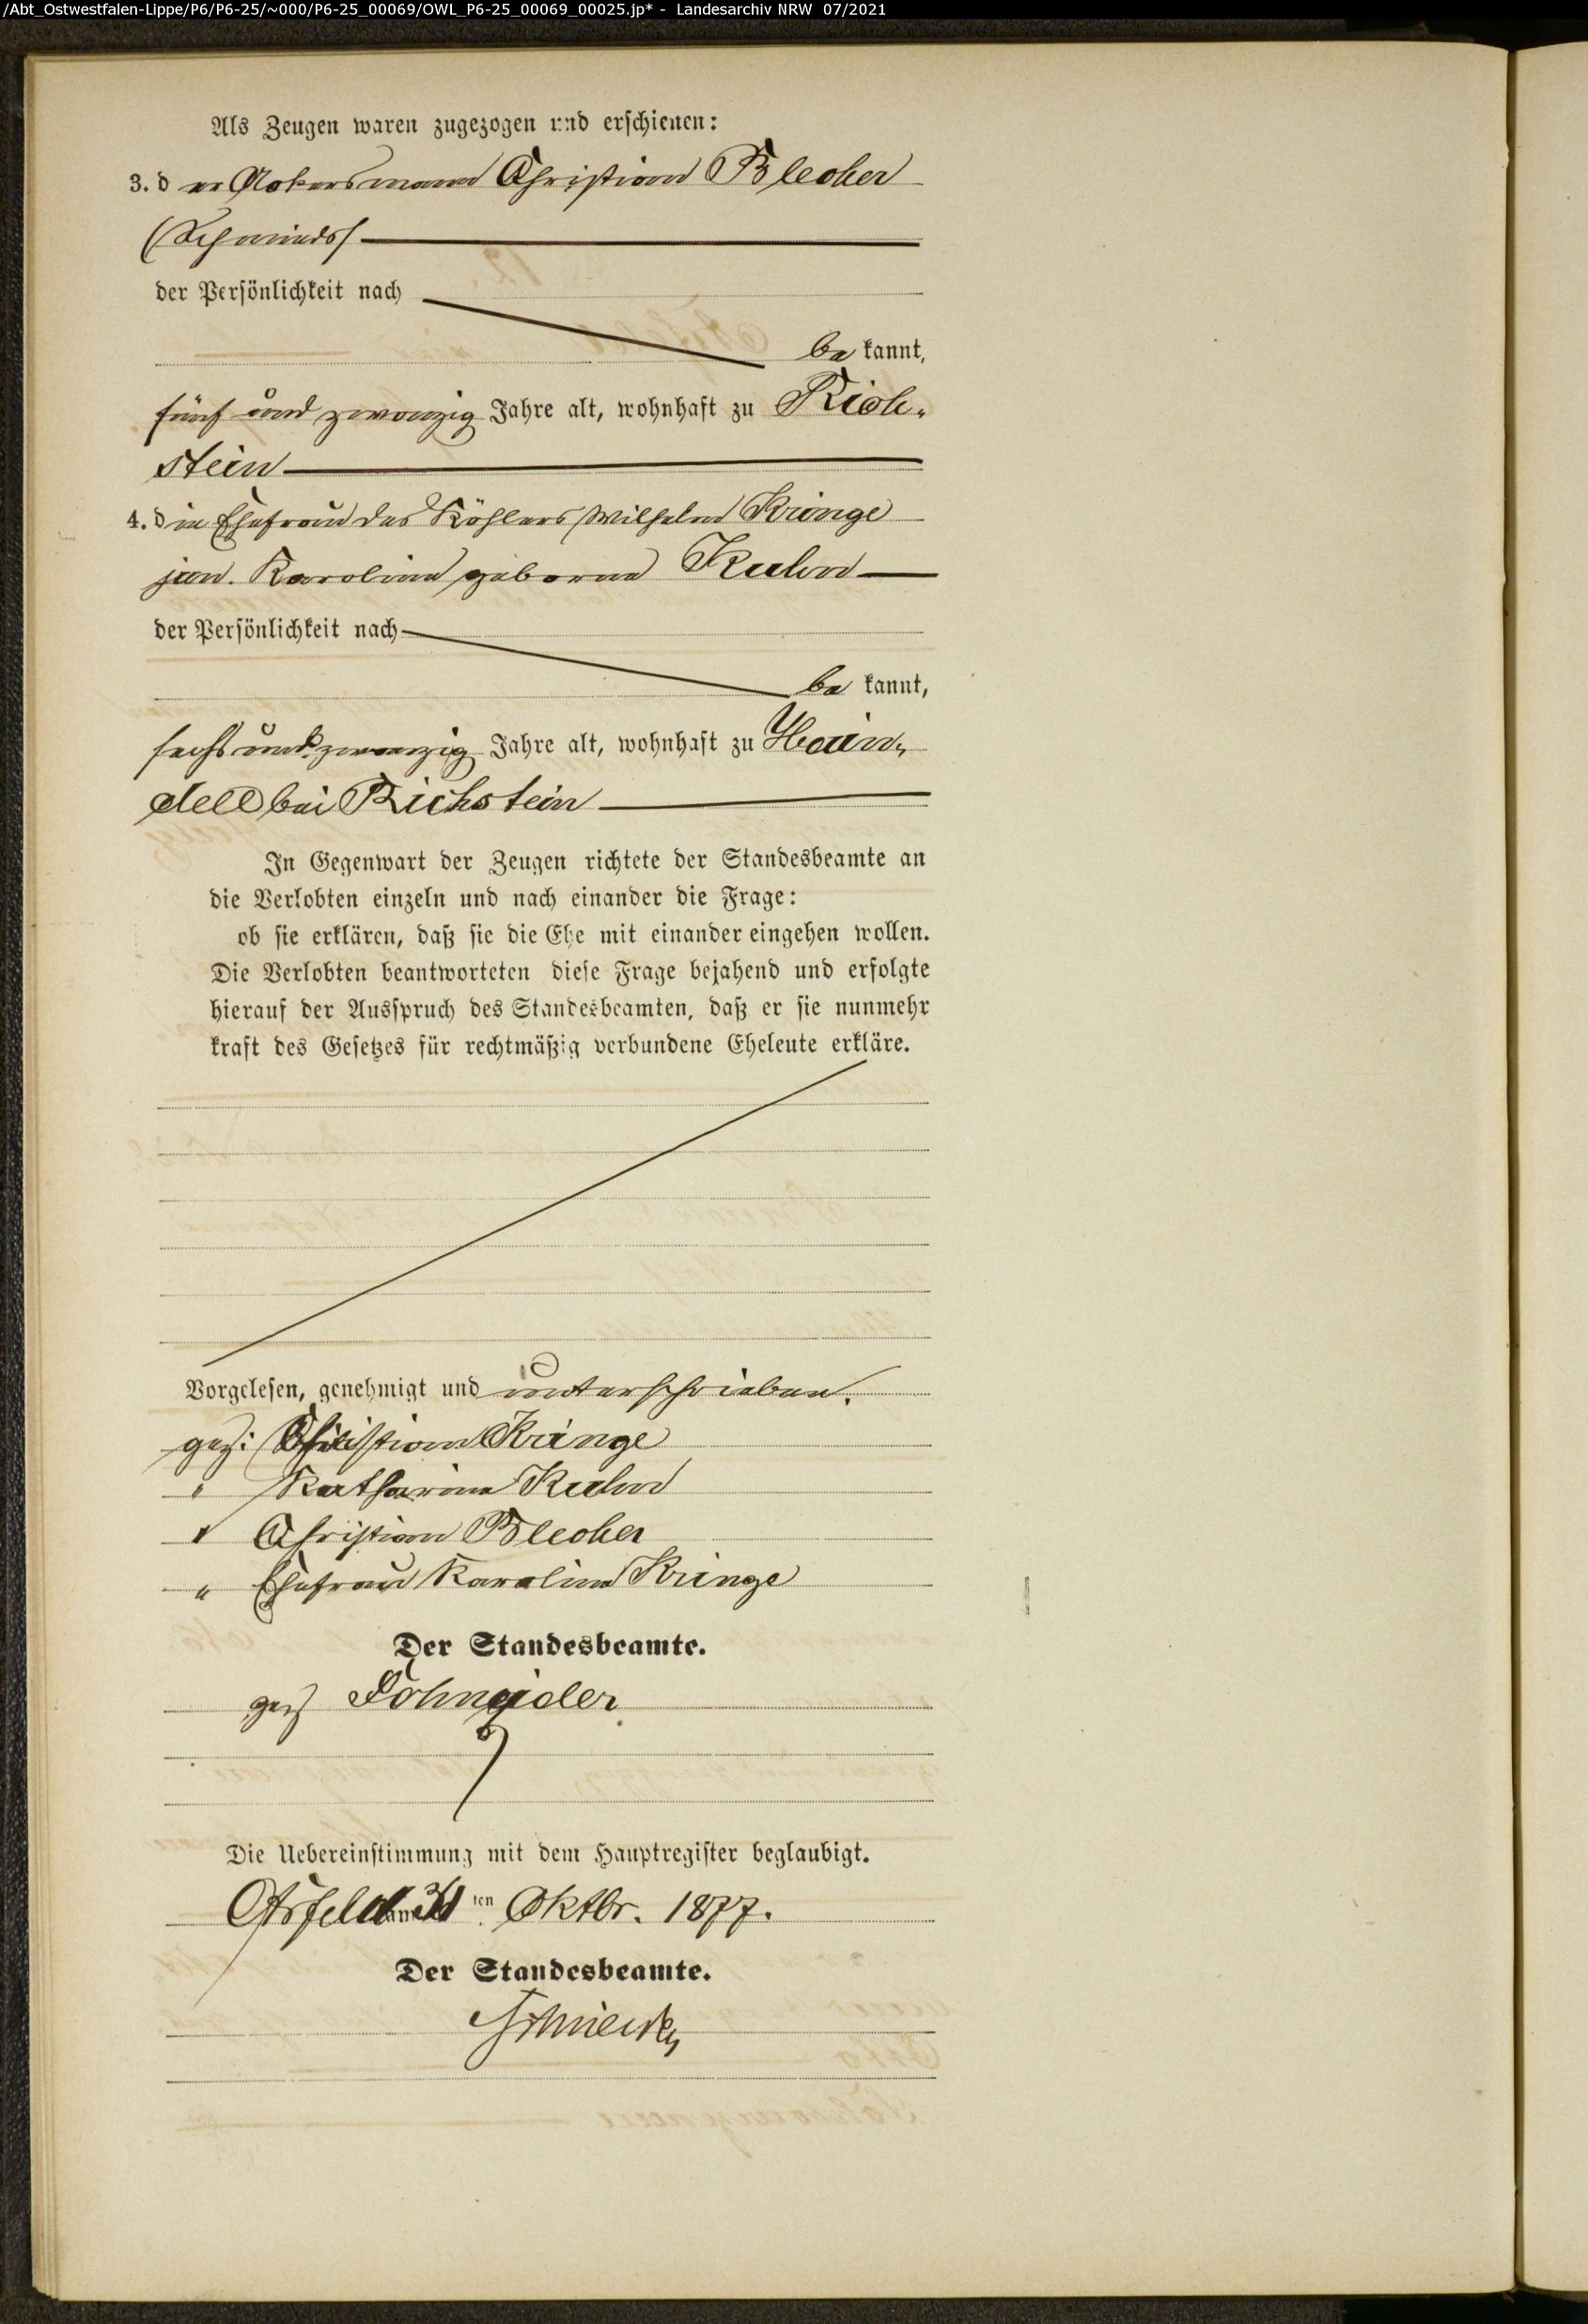 /Abt_Ostwestfalen-Lippe/P6/P6-25/~000/P6-25_00069/OWL_P6-25_00069_00025.jp* - Landesarchiv NRW 07/2021
Als Zeugen waren zugezogen und erschienen:
3. d er Ackersmann Christian Blecher
(Schmieds)
der Persönlichkeit nach
be kannt,
fünf und zwanzig Jahre alt, wohnhaft zu Rich-
stein
4. d ie Ehefrau des Köhlers Wilhelm Kringe
jun. Karoline geborne Kuhn
der Persönlichkeit nach
be kannt,
sechs und zwanzig Jahre alt, wohnhaft zu Hain-
dell bei Richstein
In Gegenwart der Zeugen richtete der Standesbeamte an
die Verlobten einzeln und nach einander die Frage:
ob sie erklären, daß sie die Ehe mit einander eingehen wollen.
Die Verlobten beantworteten diese Frage bejahend und erfolgte
hierauf der Ausspruch des Standesbeamten, daß er sie nunmehr
kraft des Gesetzes für rechtmäßig verbundene Eheleute erkläre.
Vorgelesen, genehmigt und unterschrieben.
gez: Christian Kringe
" Katharine Kuhn
" Christian Blecher
" Ehefrau Karoline Kringe
Der Standesbeamte.
gez Schneider
Die Uebereinstimmung mit dem Hauptregister beglaubigt.
Arfeld am 31 ten Oktbr. 1877.
Der Standesbeamte.
Schneider